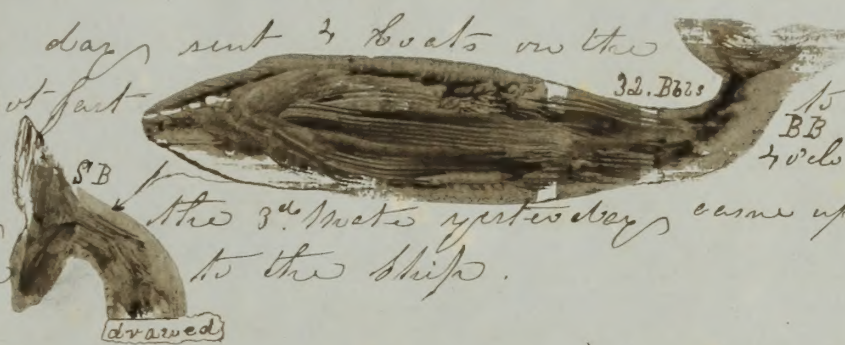 day sent 4 boats on the
ot fast 32. Bbls to
BB
4 oclo
SB
the 3d Mate yesterday came up
to the Ship.
drawed